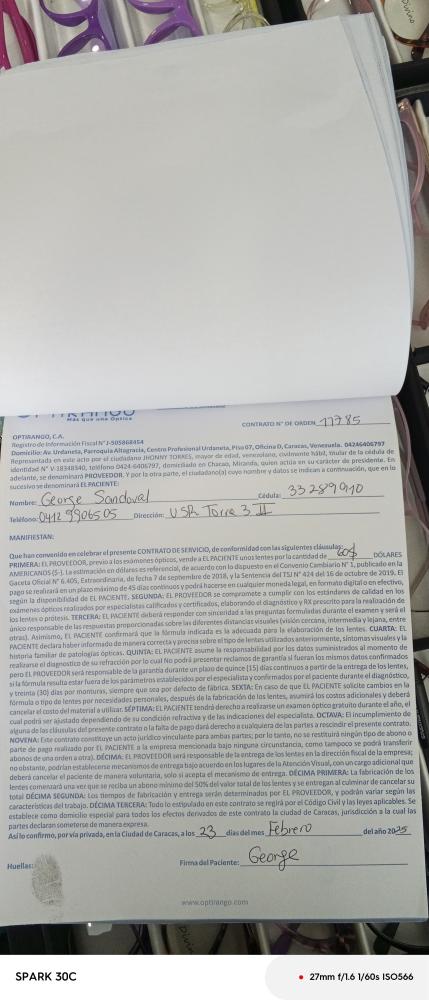 OPTIRANGO
Más que una Óptica
CONTRATO N° DE ORDEN 11785
OPTIRANGO, C.A.
Registro de Información Fiscal N° J-505868454
Domicilio: Av. Urdaneta, Parroquia Altagracia, Centro Profesional Urdaneta, Piso 07, Oficina D, Caracas, Venezuela. 04246406797
Representada en este acto por el ciudadano JHONNY TORRES, mayor de edad, venezolano, civilmente hábil, titular de la cédula de
identidad N° V-18348540, teléfono 0424-6406797, domiciliado en Chacao, Miranda, quien actúa en su carácter de presidente. En
adelante, se denominará PROVEEDOR. Y por la otra parte, el ciudadano(a) cuyo nombre y datos se indican a continuación, que en lo
sucesivo se denominará EL PACIENTE:
Nombre: George Sandoval Cédula: 33289910
Teléfono: 0412 9906505 Dirección: USR Torre 3 II
MANIFIESTAN:
Que han convenido en celebrar el presente CONTRATO DE SERVICIO, de conformidad con las siguientes cláusulas:
PRIMERA: EL PROVEEDOR, previo a los exámenes ópticos, vende a EL PACIENTE unos lentes por la cantidad de 60$ DÓLARES
AMERICANOS ($-). La estimación en dólares es referencial, de acuerdo con lo dispuesto en el Convenio Cambiario N° 1, publicado en la
Gaceta Oficial N° 6.405, Extraordinaria, de fecha 7 de septiembre de 2018, y la Sentencia del TSJ N° 424 del 16 de octubre de 2019. El
pago se realizará en un plazo máximo de 45 días continuos y podrá hacerse en cualquier moneda legal, en formato digital o en efectivo,
según la disponibilidad de EL PACIENTE. SEGUNDA: EL PROVEEDOR se compromete a cumplir con los estándares de calidad en los
exámenes ópticos realizados por especialistas calificados y certificados, elaborando el diagnóstico y RX prescrito para la realización de
los lentes o prótesis. TERCERA: EL PACIENTE deberá responder con sinceridad a las preguntas formuladas durante el examen y será el
único responsable de las respuestas proporcionadas sobre las diferentes distancias visuales (visión cercana, intermedia y lejana, entre
otras). Asimismo, EL PACIENTE confirmará que la fórmula indicada es la adecuada para la elaboración de los lentes. CUARTA: EL
PACIENTE declara haber informado de manera correcta y precisa sobre el tipo de lentes utilizados anteriormente, síntomas visuales y la
historia familiar de patologías ópticas. QUINTA: EL PACIENTE asume la responsabilidad por los datos suministrados al momento de
realizarse el diagnostico de su refracción por lo cual No podrá presentar reclamos de garantía si fueran los mismos datos confirmados
pero EL PROVEEDOR será responsable de la garantía durante un plazo de quince (15) días continuos a partir de la entrega de los lentes,
si la fórmula resulta estar fuera de los parámetros establecidos por el especialista y confirmados por el paciente durante el diagnóstico,
y treinta (30) días por monturas, siempre que sea por defecto de fábrica. SEXTA: En caso de que EL PACIENTE solicite cambios en la
fórmula o tipo de lentes por necesidades personales, después de la fabricación de los lentes, asumirá los costos adicionales y deberá
cancelar el costo del material a utilizar. SÉPTIMA: EL PACIENTE tendrá derecho a realizarse un examen óptico gratuito durante el año, el
cual podrá ser ajustado dependiendo de su condición refractiva y de las indicaciones del especialista. OCTAVA: El incumplimiento de
alguna de las cláusulas del presente contrato o la falta de pago dará derecho a cualquiera de las partes a rescindir el presente contrato.
NOVENA: Este contrato constituye un acto jurídico vinculante para ambas partes; por lo tanto, no se restituirá ningún tipo de abono o
parte de pago realizado por EL PACIENTE a la empresa mencionada bajo ninguna circunstancia, como tampoco se podrá transferir
abonos de una orden a otra). DÉCIMA: EL PROVEEDOR será responsable de la entrega de los lentes en la dirección fiscal de la empresa;
no obstante, podrían establecerse mecanismos de entrega bajo acuerdo en los lugares de la Atención Visual, con un cargo adicional que
deberá cancelar el paciente de manera voluntaria, solo si acepta el mecanismo de entrega. DÉCIMA PRIMERA: La fabricación de los
lentes comenzará una vez que se reciba un abono mínimo del 50% del valor total de los lentes y se entregan al culminar de cancelar su
total DÉCIMA SEGUNDA: Los tiempos de fabricación y entrega serán determinados por EL PROVEEDOR, y podrán variar según las
características del trabajo. DÉCIMA TERCERA: Todo lo estipulado en este contrato se regirá por el Código Civil y las leyes aplicables. Se
establece como domicilio especial para todos los efectos derivados de este contrato la ciudad de Caracas, jurisdicción a la cual las
partes declaran someterse de manera expresa.
Así lo confirmo, por vía privada, en la Ciudad de Caracas, a los 23 días del mes Febrero del año 2025
Huellas: Firma del Paciente: George
www.optirango.com
SPARK 30C
27mm f/1.6 1/60s ISO566